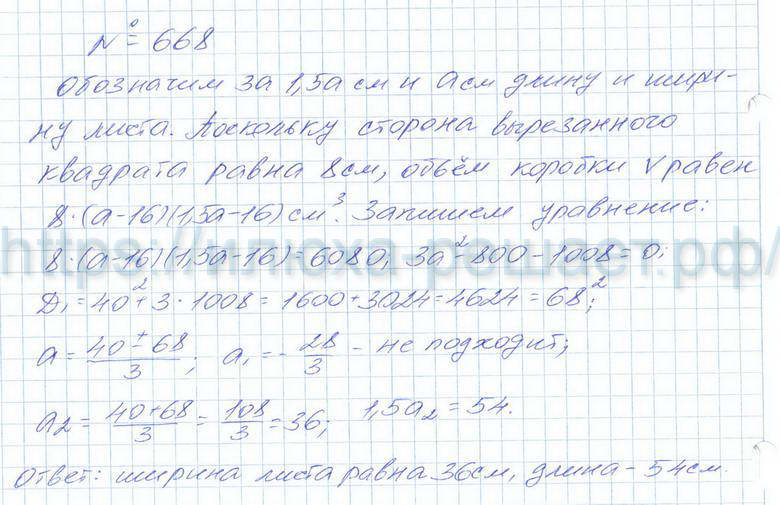 № 668
Обозначим за 1,5a см и a см длину и шири-
ну листа. Поскольку сторона вырезанного
квадрата равна 8см, объём коробки V равен
8·(a-16)(1,5a-16) см³. Запишем уравнение:
8·(a-16)(1,5a-16)=6080; 3a²-800-1008=0;
D₁=40²+3·1008=1600+3024=4624=68²;
a=(40±68)/3; a₁=-28/3 - не подходит;
a₂=(40+68)/3=108/3=36; 1,5a₂=54.
Ответ: ширина листа равна 36см, длина - 54см.